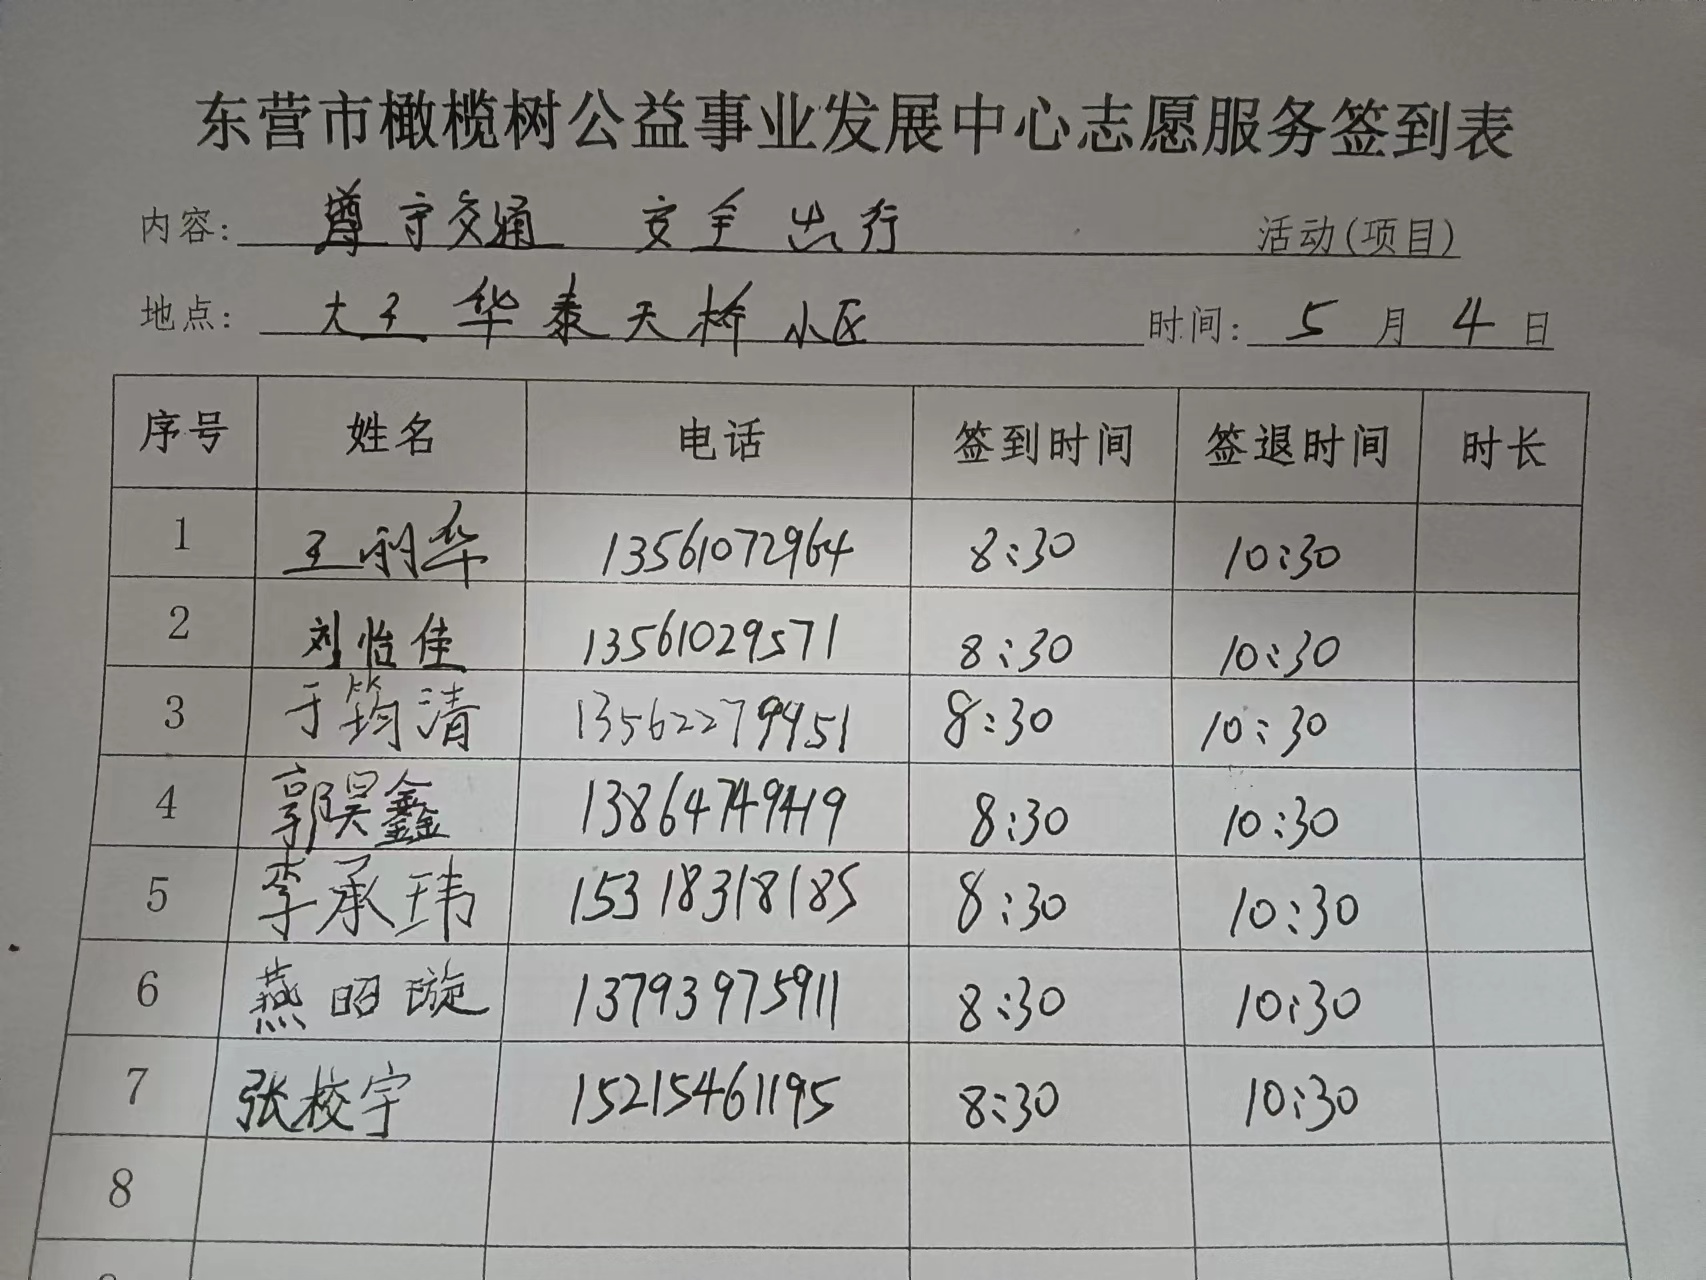 东营市橄榄树公益事业发展中心志愿服务签到表
内容: 遵守交通 安全出行 活动(项目)
地点: 大王华泰天桥小区 时间: 5月4日
序号 姓名 电话 签到时间 签退时间 时长
1 王利华 13561072964 8:30 10:30
2 刘怡佳 13561029571 8:30 10:30
3 于筠清 13562279951 8:30 10:30
4 郭昊鑫 13864749419 8:30 10:30
5 李承玮 15318318185 8:30 10:30
6 燕昭璇 13793975911 8:30 10:30
7 张校宇 15215461195 8:30 10:30
8